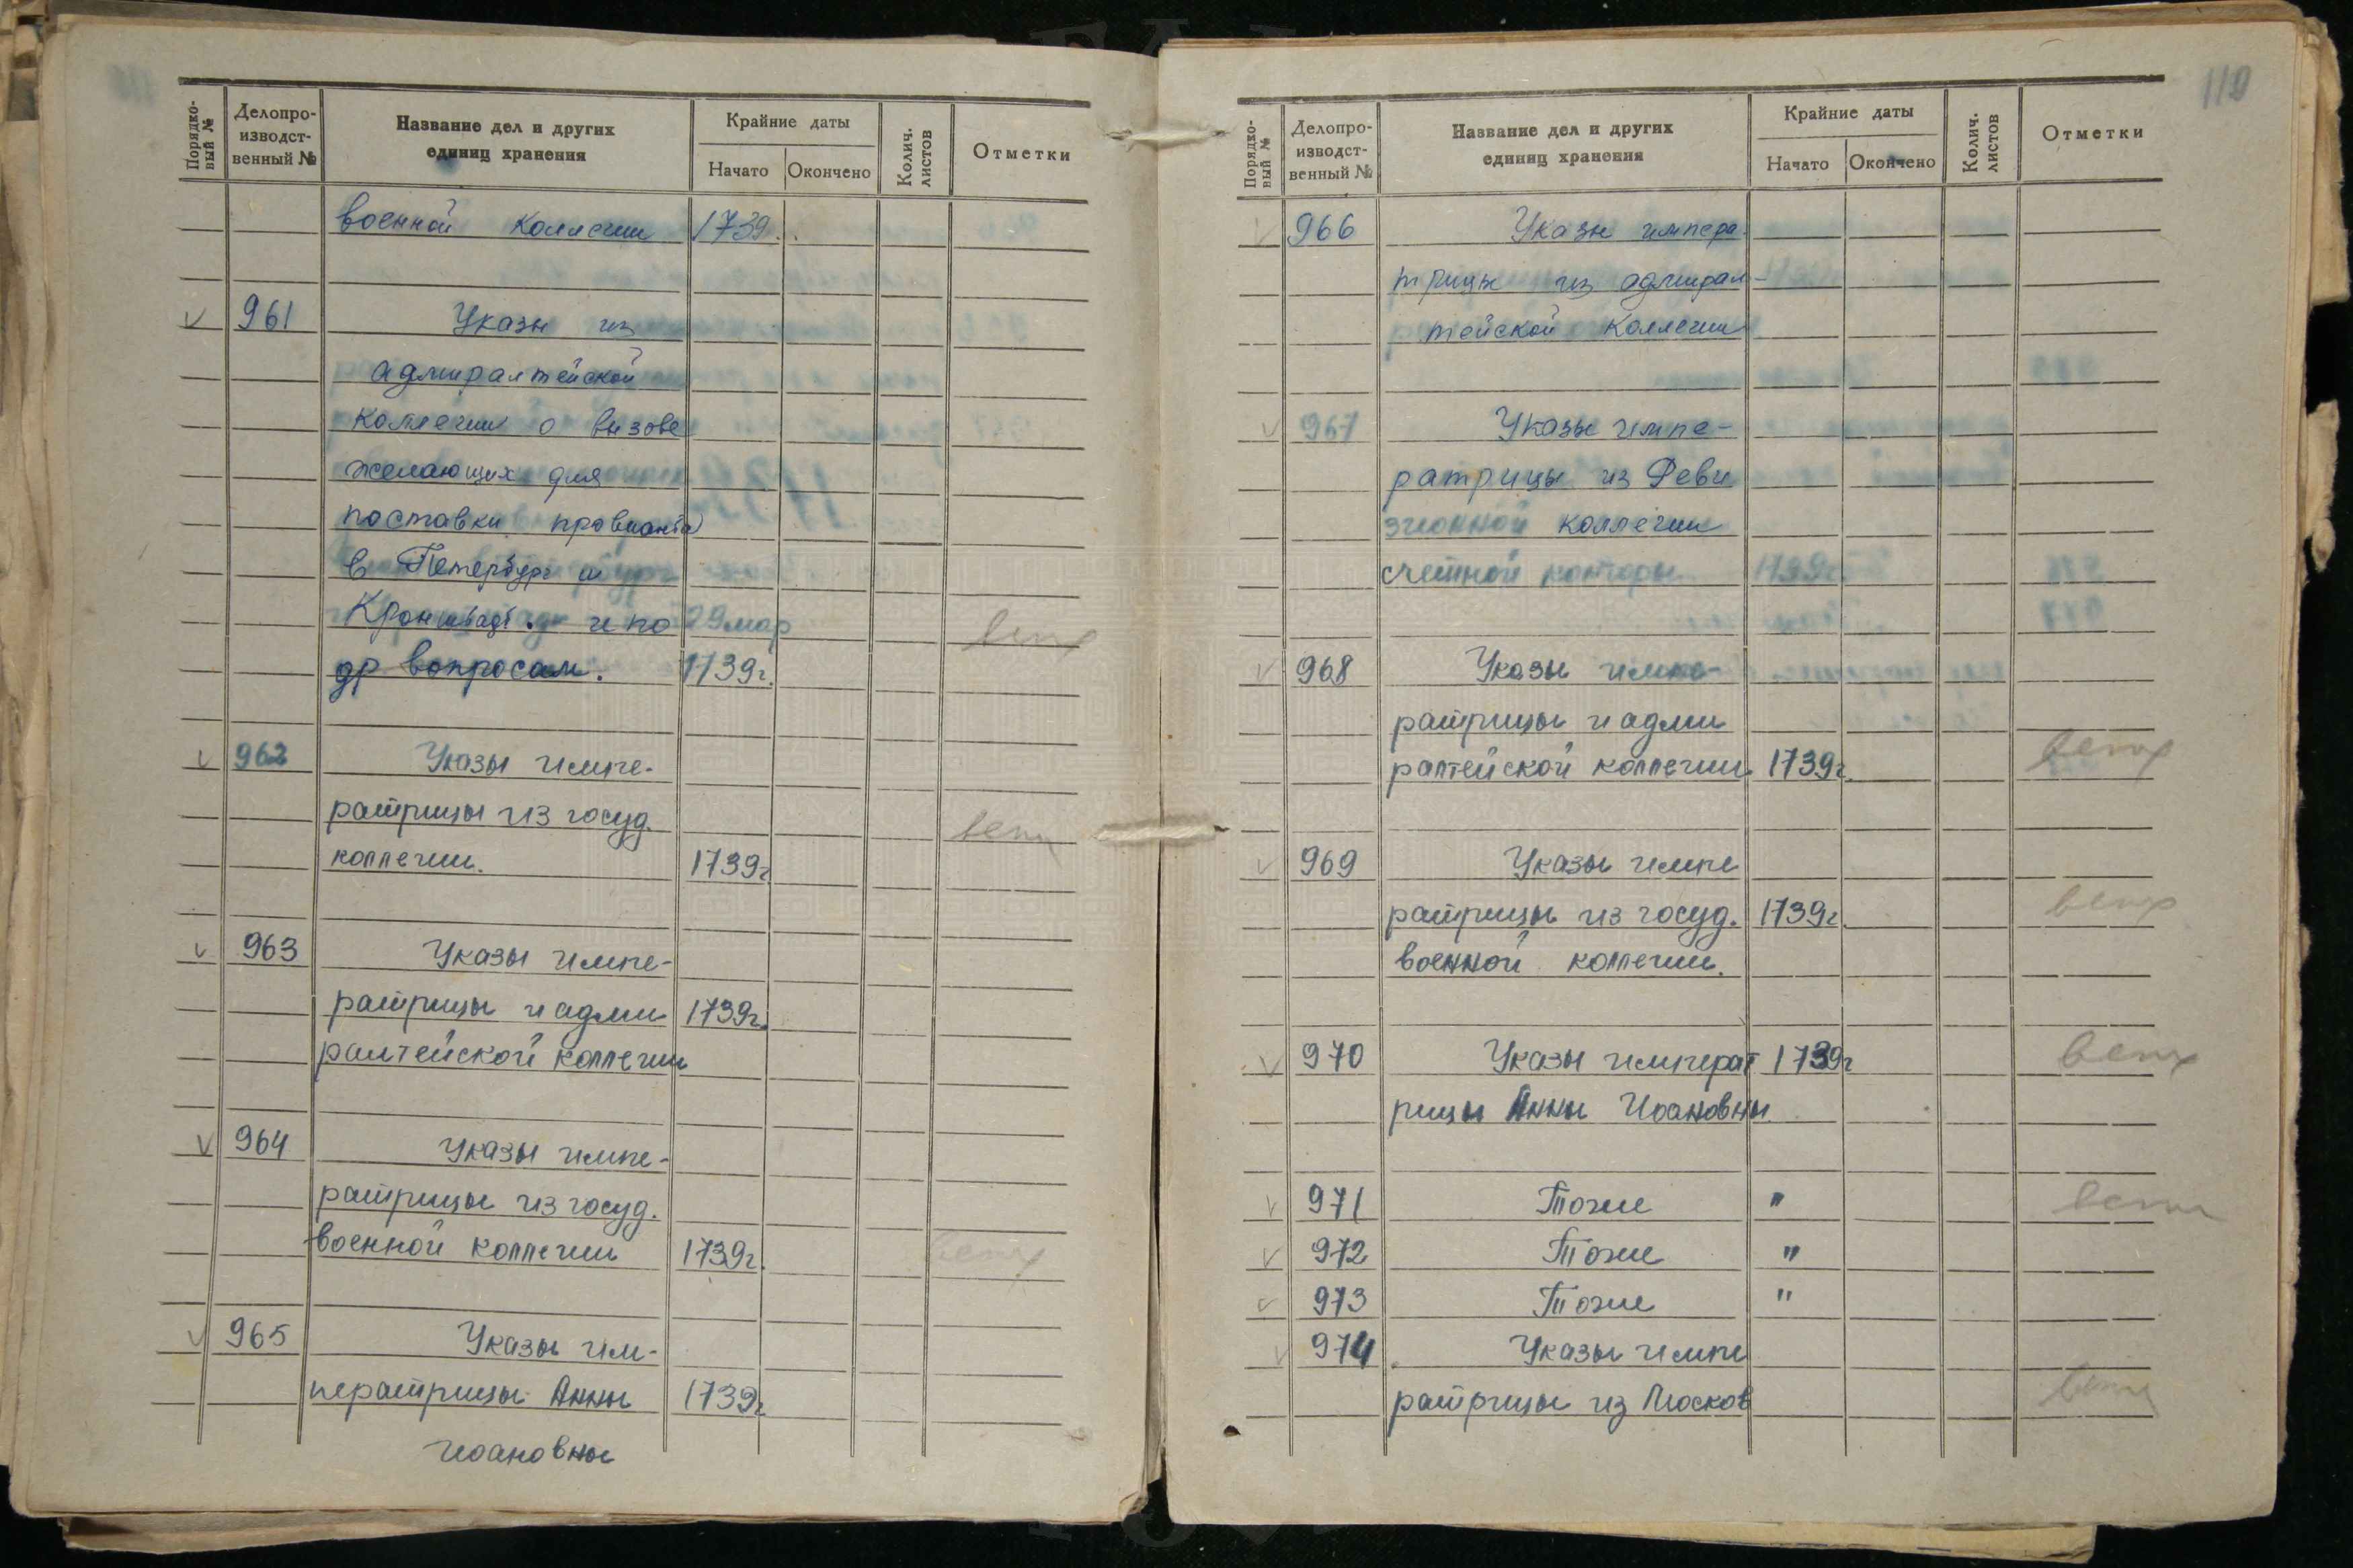 Порядко-
вый №
Делопро-
изводст-
венный №
Название дел и других
единиц хранения
Крайние даты
Начато
Окончено
Колич.
листов
Отметки
военной коллегии 1739
961 Указы из
адмиралтейской
коллегии о вызове
желающих для
поставки провианта
в Петербург и
Кронштадт и по 29 мар
др вопросам. 1739г. ветх
962 Указы импе-
ратрицы из госуд.
коллегии. 1739г ветх
963 Указы импе-
ратрицы и адми 1739г.
ралтейской коллегии
964 Указы импе-
ратрицы из госуд.
военной коллегии 1739г. ветх
965 Указы им-
ператрицы Анны 1739г
Иоановны
119
Порядко-
вый №
Делопро-
изводст-
венный №
Название дел и других
единиц хранения
Крайние даты
Начато
Окончено
Колич.
листов
Отметки
966 Указы импера
трицы из адмирал-
тейской коллегии
967 Указы импе-
ратрицы из Реви
зионной коллегии
счетной конторы 1739г
968 Указы импе-
ратрицы и адми
ралтейской коллегии 1739г. ветх
969 Указы импе
ратрицы из госуд. 1739г. ветх
военной коллегии.
970 Указы императ 1739г ветх
рицы Анны Иоановны.
971 Тоже " ветх
972 Тоже "
973 Тоже "
974 Указы импе
ратрицы из Москов ветх